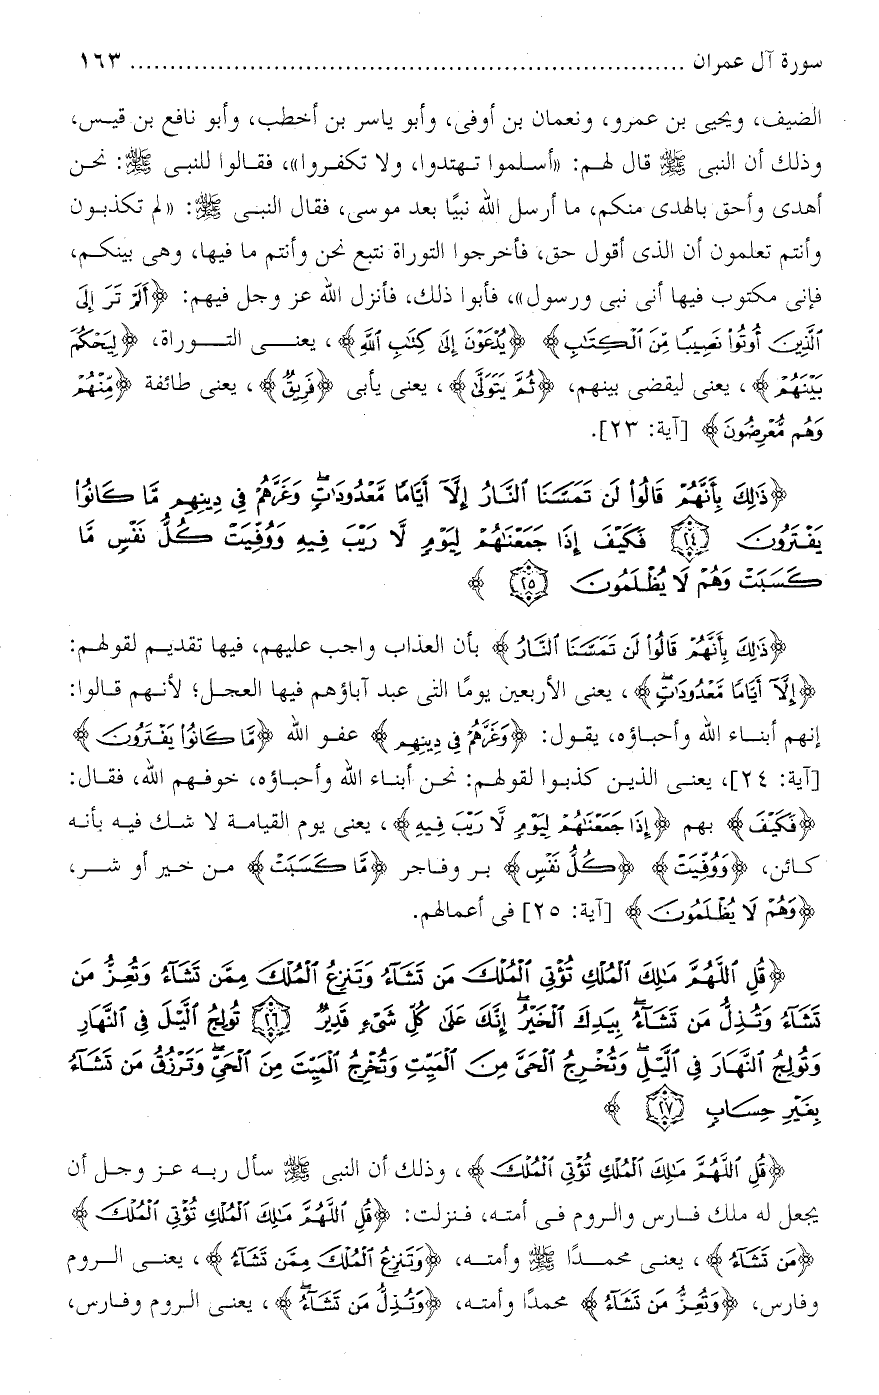 سورة آل عمران ...................................................................... ١٦٣
الضيف، ويحيى بن عمرو، ونعمان بن أوفى، وأبو ياسر بن أخطب، وأبو نافع بن قيس،
وذلك أن النبى ﷺ قال لهم: «أسلموا تهتدوا، ولا تكفروا»، فقالوا للنبى ﷺ: نحن
أهدى وأحق بالهدى منكم، ما أرسل الله نبيًا بعد موسى، فقال النبى ﷺ: «لم تكذبون
وأنتم تعلمون أن الذى أقول حق، فأخرجوا التوراة نتبع نحن وأنتم ما فيها، وهى بينكم،
فإنى مكتوب فيها أنى نبى ورسول»، فأبوا ذلك، فأنزل الله عز وجل فيهم: ﴿أَلَمْ تَرَ إِلَى
ٱلَّذِينَ أُوتُوا۟ نَصِيبًا مِّنَ ٱلْكِتَٰبِ﴾ ﴿يُدْعَوْنَ إِلَىٰ كِتَٰبِ ٱللَّهِ﴾، يعنى التوراة، ﴿لِيَحْكُمَ
بَيْنَهُمْ﴾، يعنى ليقضى بينهم، ﴿ثُمَّ يَتَوَلَّىٰ﴾، يعنى يأبى ﴿فَرِيقٌ﴾، يعنى طائفة ﴿مِّنْهُمْ
وَهُم مُّعْرِضُونَ﴾ [آية: ٢٣].
﴿ذَٰلِكَ بِأَنَّهُمْ قَالُوا۟ لَن تَمَسَّنَا ٱلنَّارُ إِلَّآ أَيَّامًا مَّعْدُودَٰتٍ ۖ وَغَرَّهُمْ فِى دِينِهِم مَّا كَانُوا۟
يَفْتَرُونَ ٢٤ فَكَيْفَ إِذَا جَمَعْنَٰهُمْ لِيَوْمٍ لَّا رَيْبَ فِيهِ وَوُفِّيَتْ كُلُّ نَفْسٍ مَّا
كَسَبَتْ وَهُمْ لَا يُظْلَمُونَ ٢٥ ﴾
﴿ذَٰلِكَ بِأَنَّهُمْ قَالُوا۟ لَن تَمَسَّنَا ٱلنَّارُ﴾ بأن العذاب واجب عليهم، فيها تقديم لقولهم:
﴿إِلَّآ أَيَّامًا مَّعْدُودَٰتٍ ۖ﴾، يعنى الأربعين يومًا التى عبد آباؤهم فيها العجل؛ لأنهم قالوا:
إنهم أبناء الله وأحباؤه، يقول: ﴿وَغَرَّهُمْ فِى دِينِهِم﴾ عفو الله ﴿مَّا كَانُوا۟ يَفْتَرُونَ﴾
[آية: ٢٤]، يعنى الذين كذبوا لقولهم: نحن أبناء الله وأحباؤه، خوفهم الله، فقال:
﴿فَكَيْفَ﴾ بهم ﴿إِذَا جَمَعْنَٰهُمْ لِيَوْمٍ لَّا رَيْبَ فِيهِ﴾، يعنى يوم القيامة لا شك فيه بأنه
كائن، ﴿وَوُفِّيَتْ﴾ ﴿كُلُّ نَفْسٍ﴾ بر وفاجر ﴿مَّا كَسَبَتْ﴾ من خير أو شر،
﴿وَهُمْ لَا يُظْلَمُونَ﴾ [آية: ٢٥] فى أعمالهم.
﴿قُلِ ٱللَّهُمَّ مَٰلِكَ ٱلْمُلْكِ تُؤْتِى ٱلْمُلْكَ مَن تَشَآءُ وَتَنزِعُ ٱلْمُلْكَ مِمَّن تَشَآءُ وَتُعِزُّ مَن
تَشَآءُ وَتُذِلُّ مَن تَشَآءُ ۖ بِيَدِكَ ٱلْخَيْرُ ۖ إِنَّكَ عَلَىٰ كُلِّ شَىْءٍ قَدِيرٌ ٢٦ تُولِجُ ٱلَّيْلَ فِى ٱلنَّهَارِ
وَتُولِجُ ٱلنَّهَارَ فِى ٱلَّيْلِ ۖ وَتُخْرِجُ ٱلْحَىَّ مِنَ ٱلْمَيِّتِ وَتُخْرِجُ ٱلْمَيِّتَ مِنَ ٱلْحَىِّ ۖ وَتَرْزُقُ مَن تَشَآءُ
بِغَيْرِ حِسَابٍ ٢٧ ﴾
﴿قُلِ ٱللَّهُمَّ مَٰلِكَ ٱلْمُلْكِ تُؤْتِى ٱلْمُلْكَ﴾، وذلك أن النبى ﷺ سأل ربه عز وجل أن
يجعل له ملك فارس والروم فى أمته، فنزلت: ﴿قُلِ ٱللَّهُمَّ مَٰلِكَ ٱلْمُلْكِ تُؤْتِى ٱلْمُلْكَ﴾
﴿مَن تَشَآءُ﴾، يعنى محمدًا ﷺ وأمته، ﴿وَتَنزِعُ ٱلْمُلْكَ مِمَّن تَشَآءُ﴾، يعنى الروم
وفارس، ﴿وَتُعِزُّ مَن تَشَآءُ﴾ محمدًا وأمته، ﴿وَتُذِلُّ مَن تَشَآءُ ۖ﴾، يعنى الروم وفارس،